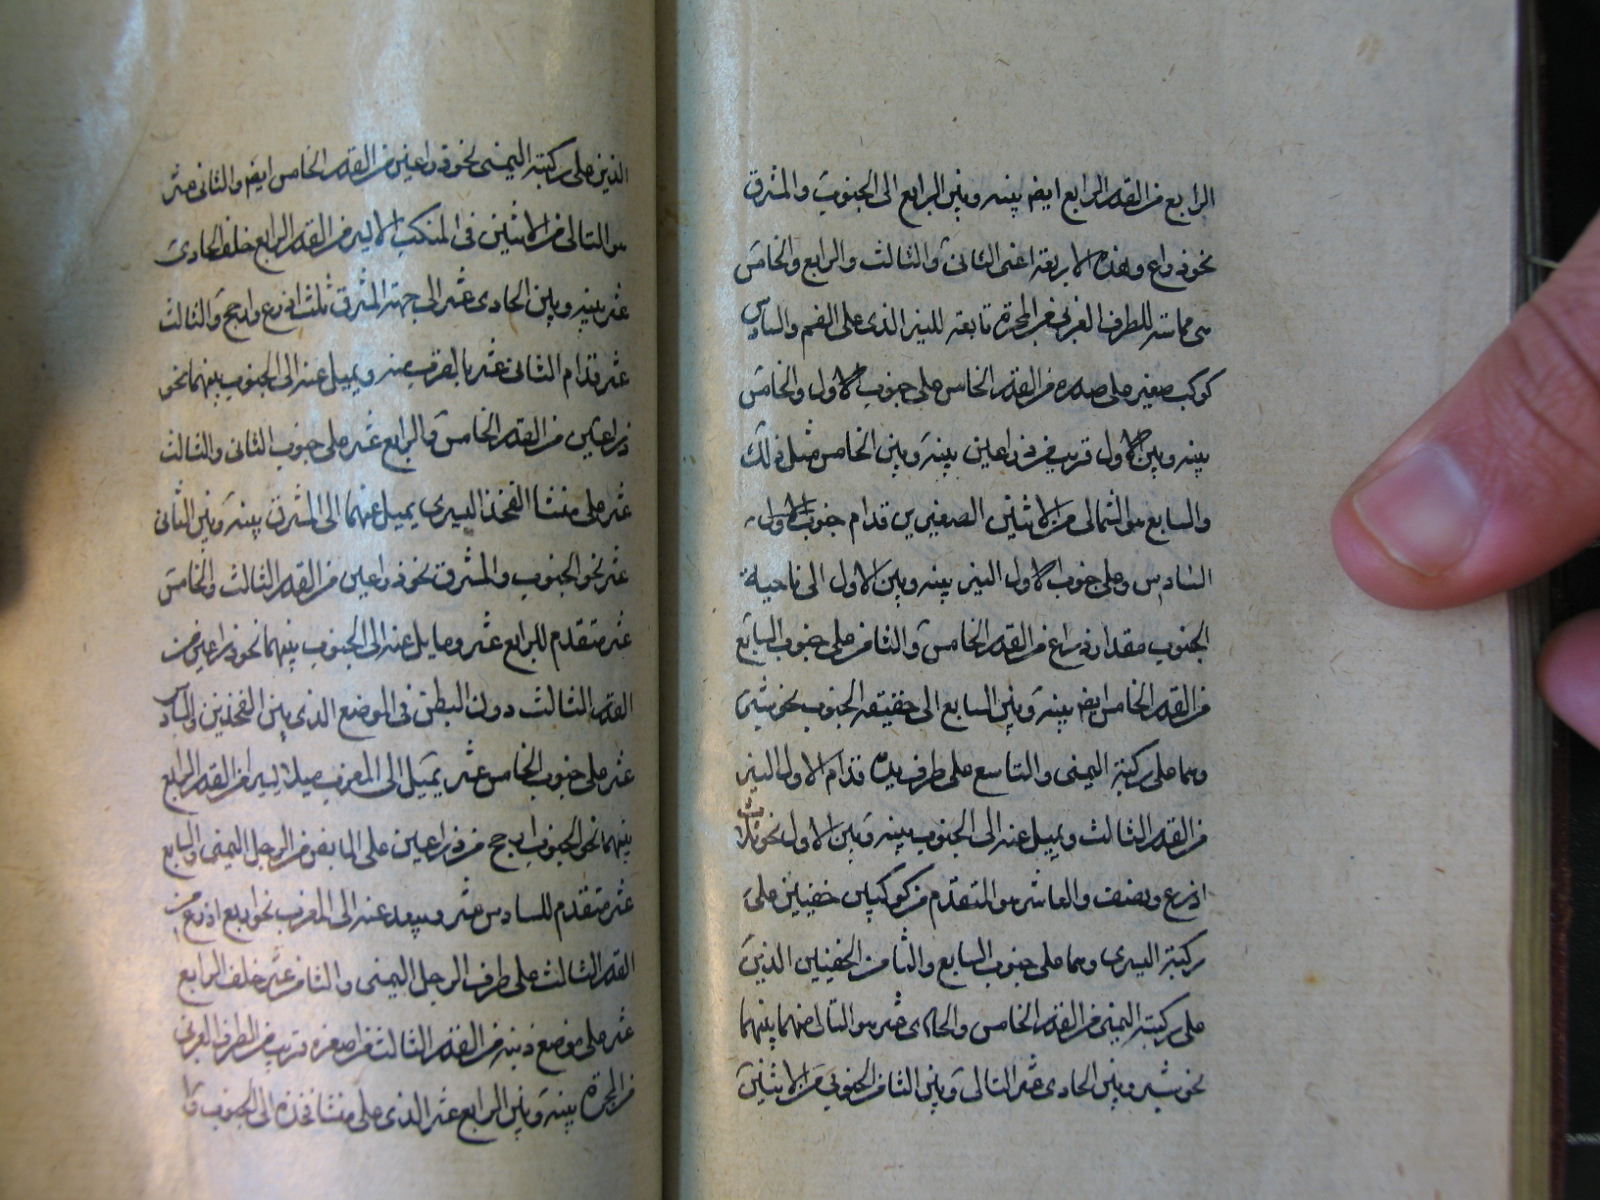 الرابع من القدر الرابع ايضه بينه وبين الرابع الى الجنوب والمشرق
نحو ذراع وهذه الاربعة اعنى الثانى والثالث والرابع والخامس
هى مماسة للطرف الغربى من المجرة تابعة للنير الذى على الفم والسادس
كوكب صغير على صدره من القدر الخامس على جنوب الاول والخامس
بينه وبين الاول قريب من ذراعين بينه وبين الخامس مثل ذلك
والسابع هو الشمالى من الاثنين الصغيرين قدام جنوب الاول
السادس وعلى جنوب الاول النير بينه وبين الاول الى ناحية
الجنوب مقدار ذراع من القدر الخامس والثامن على جنوب السابع
من القدر الخامس ايضه بينه وبين السابع الى حقيقة الجنوب نحو شبر
وهما على ركبته اليمنى والتاسع على طرف يده قدام الاول النير
من القدر الثالث ويميل عنه الى الجنوب بينه وبين الاول نحو ثلاث
اذرع ونصف والعاشر هو المتقدم من كوكبين خفيين على
ركبته اليسرى وهما على جنوب السابع والثامن الخفيين الذين
على ركبته اليمنى من القدر الخامس والحادى عشر هو التالى منهما بينهما
نحو شبر وبين الحادى عشر التالى وبين الثامن الجنوبى من الاثنين
الذين على ركبته اليمنى نحو ذراعين من القدر الخامس ايضه والثانى عشر
هو التالى من الاثنين فى المنكب الايسر من القدر الرابع خلف الحادى
عشر بينه وبين الحادى عشر الى جهة المشرق ثلث اذرع وارجح والثالث
عشر قدام الثانى عشر بالقرب منه ويميل عنه الى الجنوب بينهما نحو
ذراعين من القدر الخامس والرابع عشر على جنوب الثانى والثالث
عشر على منشا الفخذ اليسرى يميل عنهما الى المشرق بينه وبين الثانى
عشر نحو الجنوب والمشرق نحو ذراعين من القدر الثالث والخامس
عشر متقدم للرابع عشر ومايل عنه الى الجنوب بينهما نحو ذراعين من
القدر الثالث دون البطن فى الموضع الذى بين الفخذين والسادس
عشر على جنوب الخامس عشر يميل الى المغرب ميلا يسيرا من القدر الرابع
بينهما نحو الجنوب ارجح من ذراعين على المابض من الرجل اليمنى والسابع
عشر متقدم للسادس عشر ويبعد عنه الى المغرب نحو اربع اذرع من
القدر الثالث على طرف الرجل اليمنى والثامن عشر خلف الرابع
عشر على موضع ذنبه من القدر الثالث من اصغره قريب من الطرف الغربى
من المجرة بينه وبين الرابع عشر الذى على منشا فخذه الى الجنوب وا